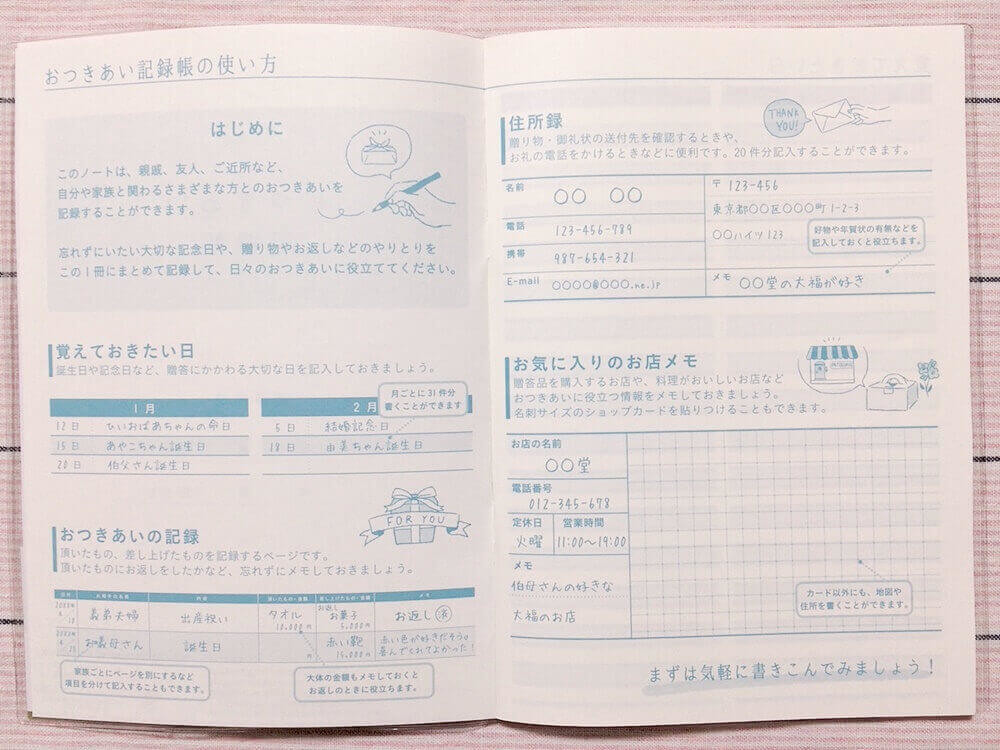 おつきあい記録帳の使い方
はじめに
このノートは、親戚、友人、ご近所など、
自分や家族と関わるさまざまな方とのおつきあいを
記録することができます。
忘れずにいたい大切な記念日や、贈り物やお返しなどのやりとりを
この1冊にまとめて記録して、日々のおつきあいに役立ててください。
覚えておきたい日
誕生日や記念日など、贈答にかかわる大切な日を記入しておきましょう。
月ごとに31件分
書くことができます
1月
12日 ひいおばあちゃんの命日
15日 あやこちゃん誕生日
20日 伯父さん誕生日
2月
5日 結婚記念日
18日 由美ちゃん誕生日
FOR YOU
おつきあいの記録
頂いたもの、差し上げたものを記録するページです。
頂いたものにお返しをしたかなど、忘れずにメモしておきましょう。
日付 お相手の名前 内容 頂いたもの・金額 差し上げたもの・金額 メモ
義弟夫婦 出産祝い タオル 10,000円 お返し お菓子 5,000円 お返し済
お義母さん 誕生日 赤い鞄 15,000円 赤い色が好きだそう。
喜んでくれてよかった!
家族ごとにページを別にするなど
項目を分けて記入することもできます。
大体の金額もメモしておくと
お返しのときに役立ちます。
住所録
THANK
YOU!
贈り物・御礼状の送付先を確認するときや、
お礼の電話をかけるときなどに便利です。20件分記入することができます。
名前 〇〇 〇〇
電話 123-456-789
携帯 987-654-321
E-mail 〇〇〇〇@〇〇〇.ne.jp
〒 123-456
東京都〇〇区〇〇〇町1-2-3
〇〇ハイツ123
好物や年賀状の有無などを
記入しておくと役立ちます。
メモ 〇〇堂の大福が好き
お気に入りのお店メモ
贈答品を購入するお店や、料理がおいしいお店など
おつきあいに役立つ情報をメモしておきましょう。
名刺サイズのショップカードを貼りつけることもできます。
お店の名前
〇〇堂
電話番号
012-345-678
定休日 営業時間
火曜 11:00〜19:00
メモ
伯母さんの好きな
大福のお店
カード以外にも、地図や
住所を書くことができます。
まずは気軽に書きこんでみましょう!